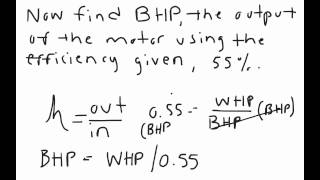 Now find BHP, the output
of the motor using the
efficiency given, 55%.
η = out/in 0.55 = WHP/BHP (BHP)
(BHP
BHP = WHP/0.55